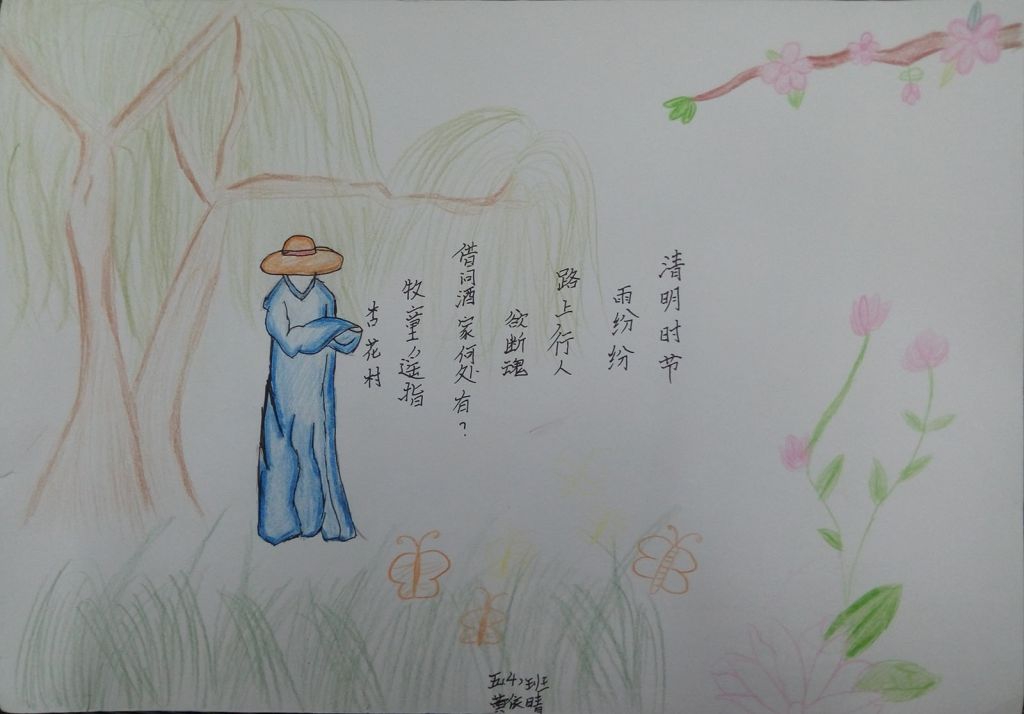 清明时节
雨纷纷
路上行人
欲断魂
借问酒家何处有?
牧童遥指
杏花村
五4班